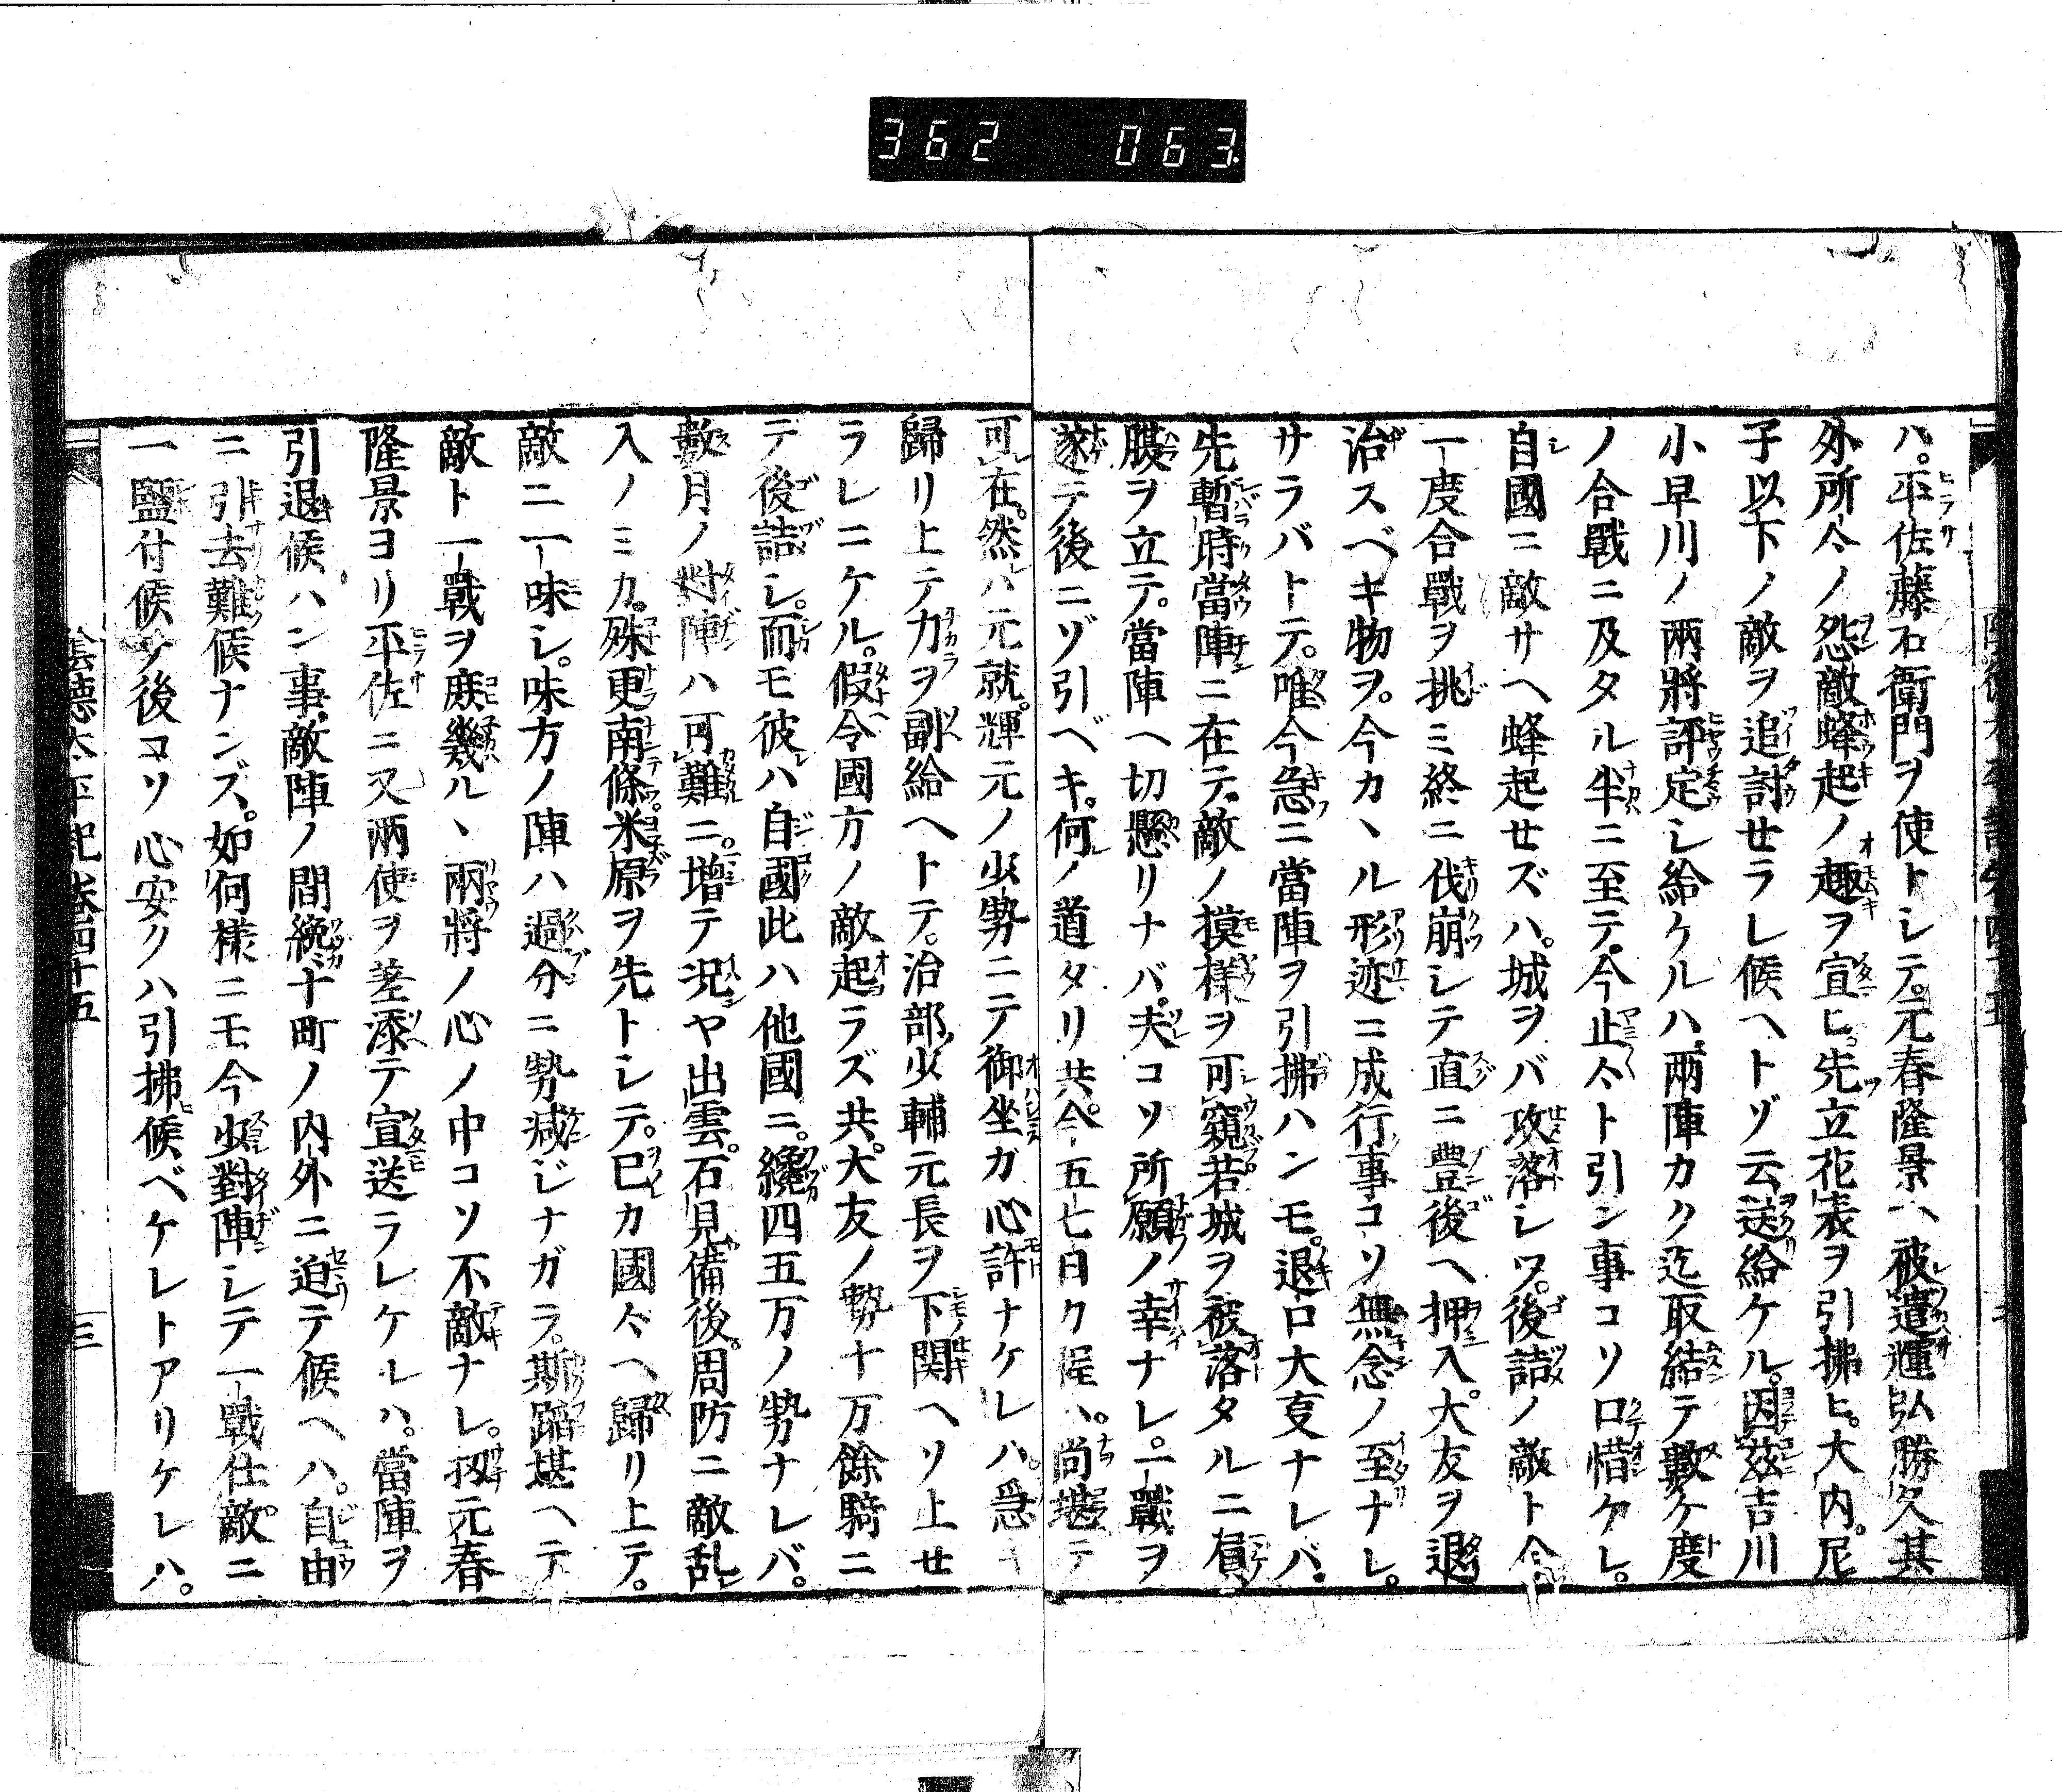 362 063
ハ。平佐藤右衛門ヲ使トシテ。元春隆景ハ被遣輝弘勝久其
外所々ノ怨敵蜂起ノ趣ヲ宣ヒ。先立花表ヲ引拂ヒ。大内。尼
子以下ノ敵ヲ追討セラレ候ヘトゾ云送給ケル。因茲吉川
小早川ノ兩將評定シ給ケルハ。兩陣カク迄取結テ數ケ度
ノ合戰ニ及タル半ニ至テ。今止々ト引ン事コソ口惜ケレ。
自國ニ敵サヘ蜂起セズハ。城ヲバ攻落シツ。後詰ノ敵ト今
一度合戰ヲ挑ミ終ニ伐崩シテ直ニ豊後ヘ押入。大友ヲ退
治スベキ物ヲ。今カヽル形迹ニ成行事コソ無念ノ至ナレ。
サラバトテ。唯今急ニ當陣ヲ引拂ハンモ。退口大叓ナレバ。
先暫時當陣ニ在テ。敵ノ摸樣ヲ可窺若城ヲ被落タルニ負
腹ヲ立テ。當陣ヘ切懸リナバ。夫コソ所願ノ幸ナレ。一戰ヲ
遂テ後ニゾ引ベキ。何ノ道タリ共。今五七日ク程ハ。尚堪テ
可在。然ハ元就。輝元ノ少勢ニテ御坐カ心許ナケレハ。急キ
歸リ上テ力ヲ副給ヘトテ。治部少輔元長ヲ下関ヘソ上セ
ラレニケル。假令國方ノ敵起ラズ共。大友ノ勢十万餘騎ニ
テ後詰シ。而モ彼ハ自國此ハ他國ニ。纔四五万ノ勢ナレバ。
數月ノ對陣ハ可難ニ。增テ况ヤ出雲。石見備後。周防ニ敵乱
入ノミカ。殊更南條。米原ヲ先トシテ。已カ國々ヘ歸リ上テ。
敵ニ一味シ。味方ノ陣ハ過分ニ勢減ジナガラ。斯蹈堪ヘテ
敵ト一戰ヲ庶幾ルヽ兩將ノ心ノ中コソ不敵ナレ。扨元春
隆景ヨリ平佐ニ又兩使ヲ差添テ宣送ラレケルハ。當陣ヲ
引退候ハン事。敵陣ノ間纔十町ノ内外ニ迫テ候ヘハ。自由
ニ引去難候ナンズ。如何樣ニモ今少對陣シテ一戰仕敵ニ
一鹽付候テ後コソ心安クハ引拂候ベケレトアリケレハ。
陰德太平記卷四十五 三